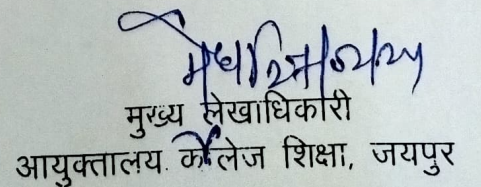 मुख्य लेखाधिकारी
आयुक्तालय कॉलेज शिक्षा, जयपुर